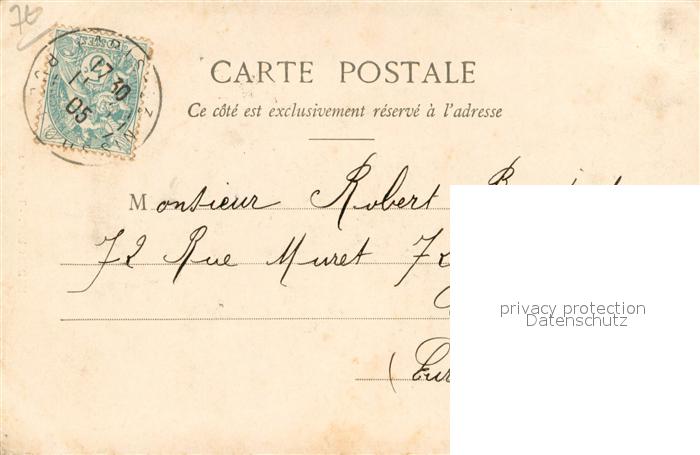 76
17 30
05
CARTE POSTALE
Ce côté est exclusivement réservé à l'adresse
Monsieur Robert
72 Rue Muret 72
privacy protection
Datenschutz
(Eur